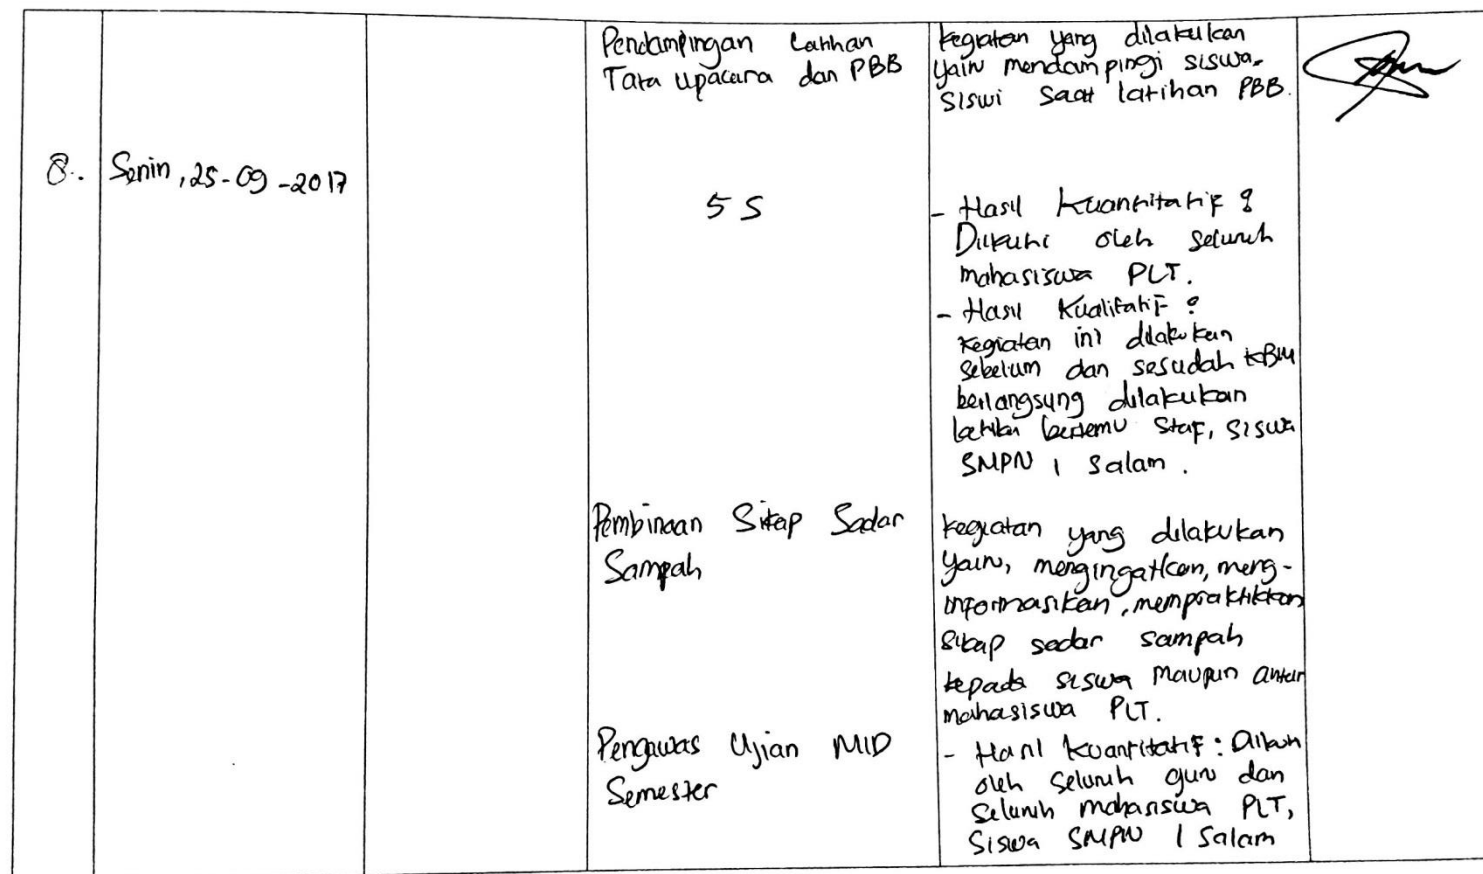 Pendampingan Latihan
Tata Upacara dan PBB
kegiatan yang dilakukan
yaitu mendampingi siswa-
siswi saat latihan PBB.
8. Senin, 25-09-2017
5 S
- Hasil Kuantitatif :
Diikuti oleh seluruh
mahasiswa PLT.
- Hasil Kualitatif :
kegiatan ini dilakukan
sebelum dan sesudah KBM
berlangsung dilakukan
ketika bertemu staf, siswa
SMPN 1 Salam.
Pembinaan Sikap Sadar
Sampah
kegiatan yang dilakukan
yaitu, mengingatkan, meng-
informasikan, mempraktikkan
sikap sadar sampah
kepada siswa maupun antar
mahasiswa PLT.
Pengawas Ujian MID
Semester
- Hasil kuantitatif : Diikuti
oleh seluruh guru dan
seluruh mahasiswa PLT,
Siswa SMPN 1 Salam